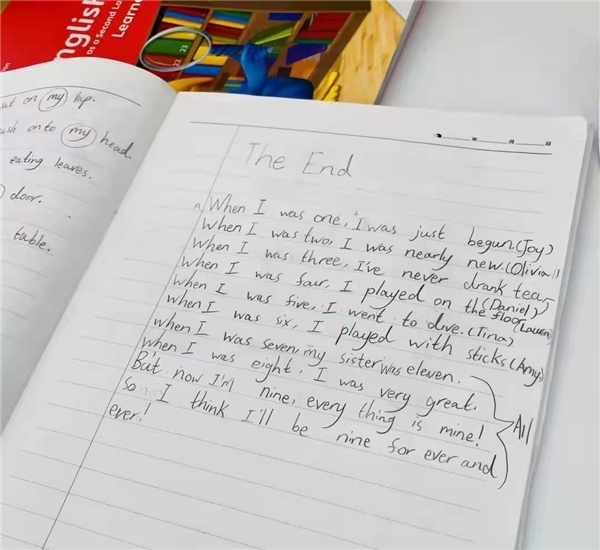 English
as a Second La
Learne
22
23
sat on my lap.
ush onto my head.
eating leaves.
door.
table.
The End
When I was one, I was just begun.(Joy)
When I was two, I was nearly new.(Olivia)
When I was three, I've never drank tea.
(Daniel)
When I was four, I played on the floor(Lauren)
When I was five, I went to dive.(Tina)
When I was six, I played with sticks(Amy)
when I was seven, my sister was eleven.
when I was eight, I was very great.
But now I'm nine, every thing is mine!
So I think I'll be nine for ever and
ever!
All